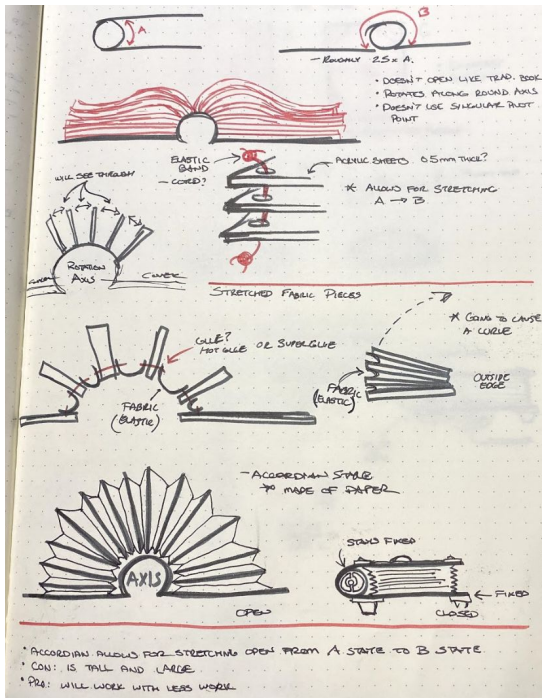 A
B
- ROUGHLY 2.5 x A.
• DOESN'T OPEN LIKE TRAD. BOOK
• ROTATES ALONG ROUND AXIS
• DOESN'T USE SINGULAR PIVOT
POINT
ELASTIC
BAND
- CORD?
ACRYLIC SHEETS 0.5mm THICK?
* ALLOWS FOR STRETCHING
A → B
WILL SEE THROUGH
ROTATION
AXIS
COVER
COVER
STRETCHED FABRIC PIECES
GLUE?
HOT GLUE OR SUPERGLUE
FABRIC
(ELASTIC)
* GOING TO CAUSE
A CURVE
FABRIC
(ELASTIC)
OUTSIDE
EDGE
- ACCORDIAN STYLE
→ MADE OF PAPER
AXIS
OPEN
STAYS FIXED
← FIXED
CLOSED
• ACCORDIAN ALLOWS FOR STRETCHING OPEN FROM A STATE TO B STATE
• CON: IS TALL AND LARGE
• PRO: WILL WORK WITH LESS WORK